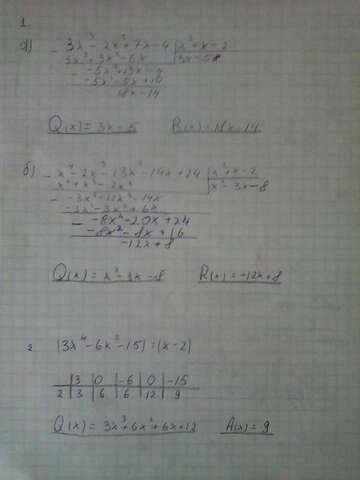 1.
а) - 3x³ - 2x² + 7x - 4 | x² + x - 2
3x³ + 3x² - 6x | 3x - 5
- -5x² + 13x - 4
-5x² - 5x + 10
18x - 14
Q(x) = 3x - 5 R(x) = 18x - 14
б) - x⁴ - 2x³ - 13x² - 14x + 24 | x² + x - 2
x⁴ + x³ - 2x² | x² - 3x - 8
- -3x³ - 11x² - 14x
-3x³ - 3x² + 6x
- -8x² - 20x + 24
-8x² - 8x + 16
-12x + 8
Q(x) = x² - 3x - 8 R(x) = -12x + 8
2. (3x⁴ - 6x² - 15) : (x - 2)
3 | 0 | -6 | 0 | -15
2 | 3 | 6 | 6 | 12 | 9
Q(x) = 3x³ + 6x² + 6x + 12 A(x) = 9